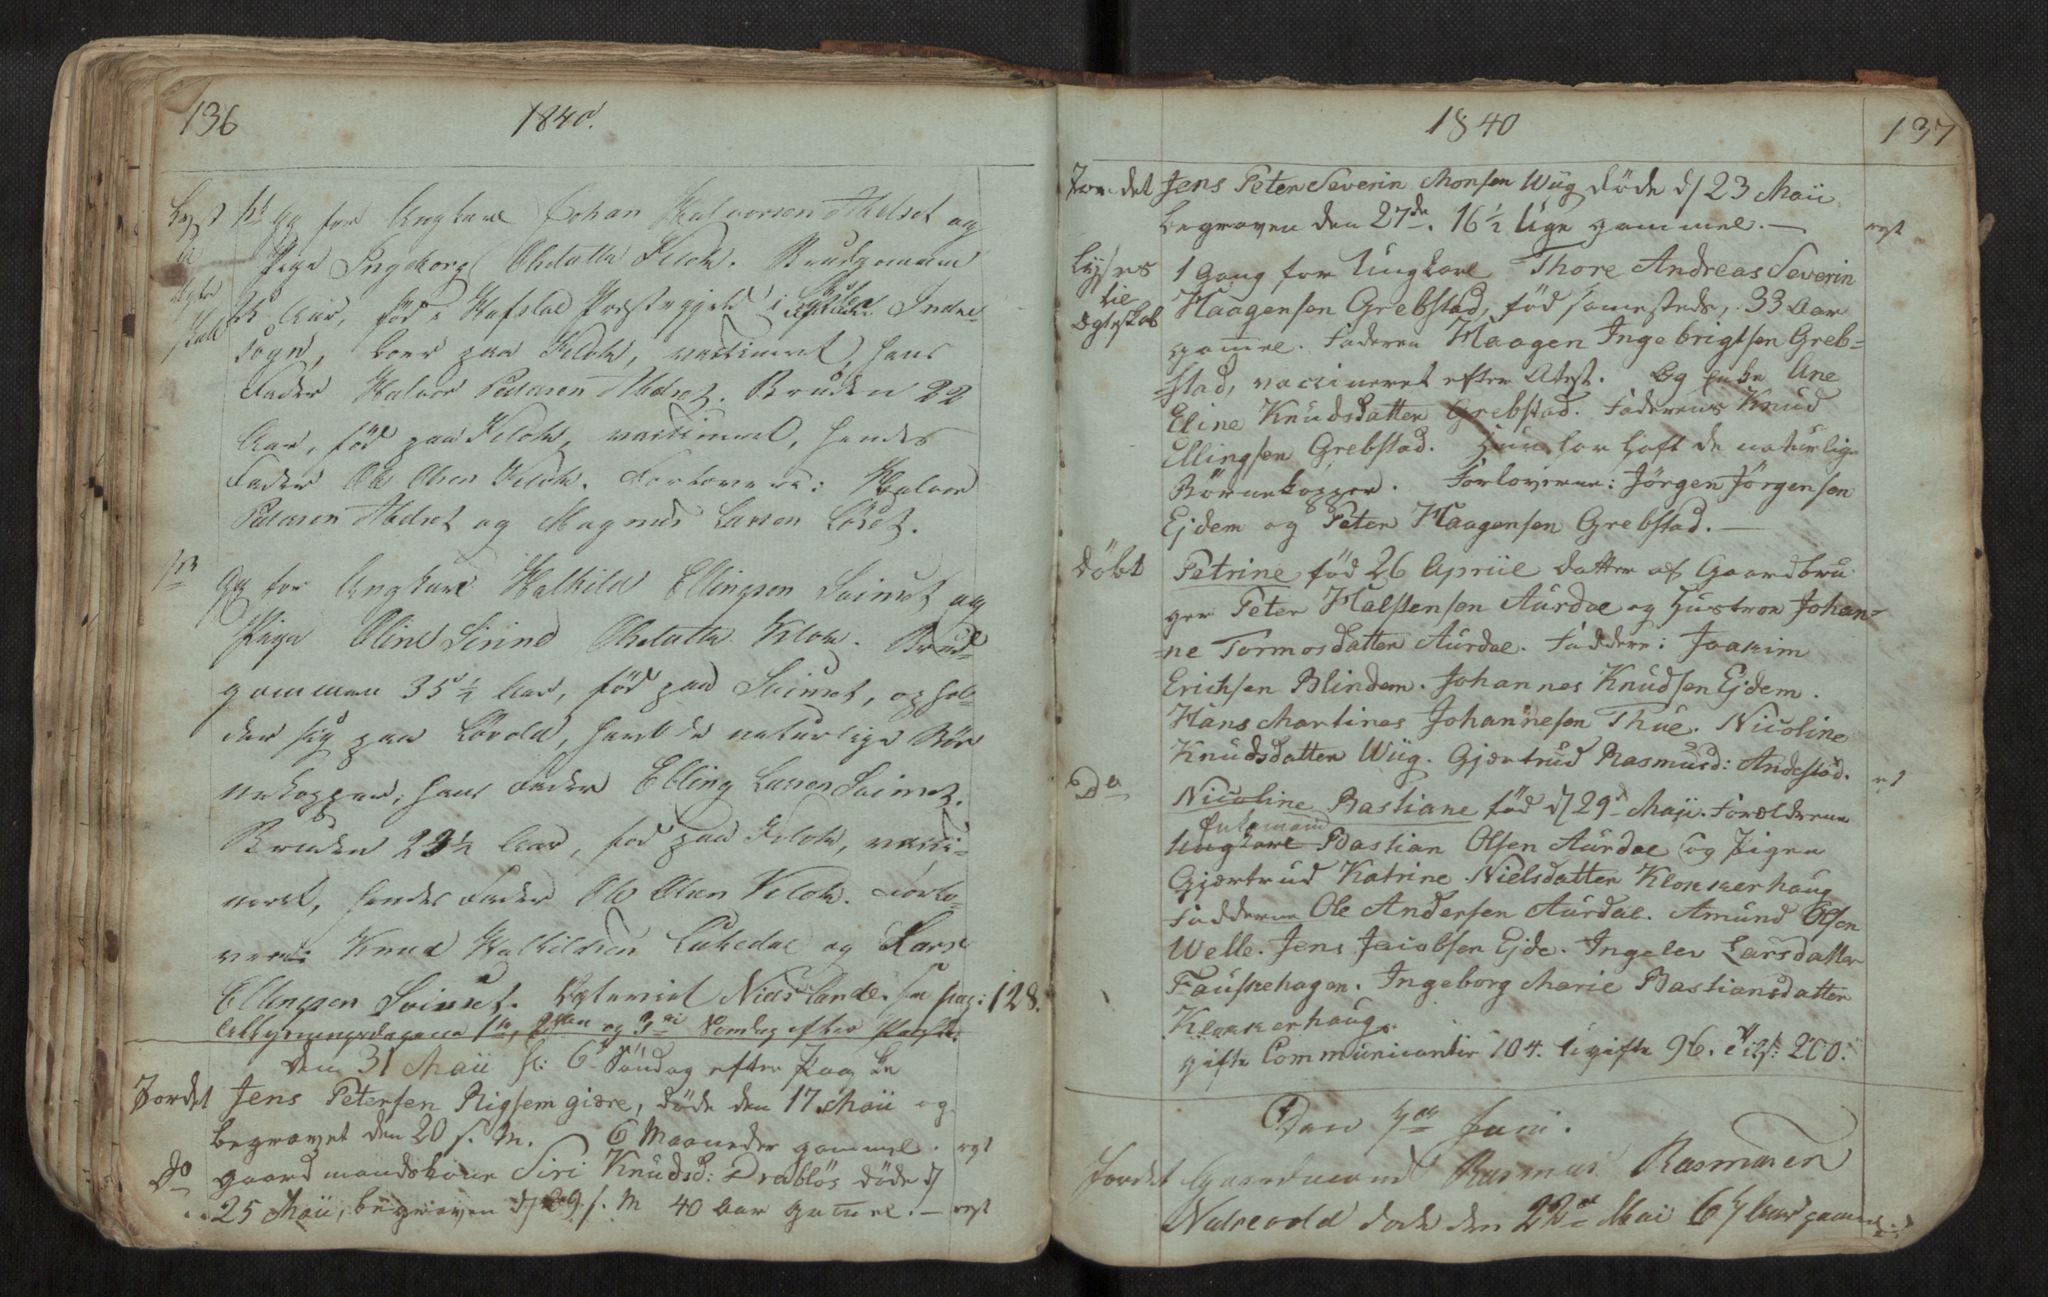 136
1840.
Lyst 1ste Gg for Ungkarl Johan Halvorsen Melset og
til Pige Ingeborg Olsdatter Klok. Brudgommen
Aar, fød i Præstegjeld i
sogn, boer paa Klok, vaccineret, hans
Fader Halvor Pedersen Melset. Bruden 22
Aar, fød paa Klok, vaccineret, hendes
Fader Ole Olsen Klok. Forlovere: Halvor
Pedersen Melset og Magnus Larsen Løset.
Gg for Ungkarl Halkild Ellingsen Suimset og
Pige Oline Olsdatter Klok. Brud-
gommen 35½ Aar, fød paa Suimset, ophol-
der sig paa Løvold, havt de naturlige Bør
nekopper, hans Fader Elling Larsen Suimset.
Bruden 23½ Aar, fød paa Klok, vacci-
neret, hendes Fader Ole Olsen Klok. Forlo-
vere: Knud Halkildsen og Lars
Ellingsen Suimset. see pag: 128.
1ste, 2den og 3die Søndag efter Paaske.
Den 31 Maii f: 6 Søndag efter Paaske
Jordet Jens Petersen Rigsemgiære, døde den 17 Maii og
begravet den 20 s. M. 6 Maaneder gammel. - ryt
Do gaardmandskone Siri Knudsd: Drabløs døde d
25 Maii, begraven d 29 s. M 40 Aar gamel. - ryt
1840
137
Jordet Jens Peter Severin Monsen Wiig døde d 23 Maii
begraven den 27de. 16½ Uge gammel. - ryt
Lysnes 1 Gang for Ungkarl Thore Andreas Severin
til Haagensen Grebstad, fød samesteds, 33 Aar
Egteskab gamel. Faderen Haagen Ingebrigtsen Greb-
stad, vaccineret efter Atest. og Enke Ane
Eline Knudsdatter Grebstad. Faderens Knud
Ellingsen Grebstad. Hun har haft de naturlige
Børnekopper. Forloverne: Jørgen Jørgensen
Ejdem og Peter Haagensen Grebstad. -
Døbt Petrine fød 26 Apriil Datter af Gaardbru
ger Peter Halstensen Aurdal og Hustroe Johan-
ne Tormosdatter Aurdal. Faddere: Joakim
Erichsen Blindem. Johannes Knudsen Ejdem.
Hans Martines Johannesen Thue. Nicoline
Knudsdatter Wiig. Gjertrud Rasmusd: Andestad.
Do Nicoline Bastiane fød d 29d Maji. Forældrene
Enkemand
Ungkarl Bastian Olsen Aurdal og Pigen
Gjærtrud Katrine Nielsdatter Klokkerhaug
Fadderne Ole Andersen Aurdal. Amund Olsen
Welle. Jens Jacobsen Ejde. Ingelev Larsdatter
Fauskehagen. Ingeborg Marie Bastiansdatter
Klokkerhaug.
gifte Communicanter 104. Ugifte 96. Tils: 200.
Den 7de Juni.
Jordet Gaardmand Rasmus Rasmusen
døde den 22de Mai 67 Aar gammel